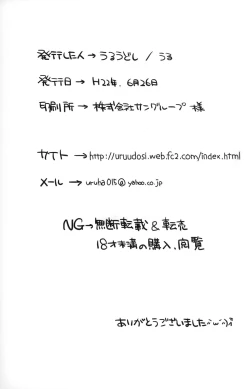 発行した人→うるうどし / うる
発行日→H22年. 6月26日
印刷所→株式会社サングループ 様
サイト→http://uruudosi.web.fc2.com/index.html
メール→uruha015@yahoo.co.jp
NG→無断転載&転売
18才未満の購入、閲覧
ありがとうございました